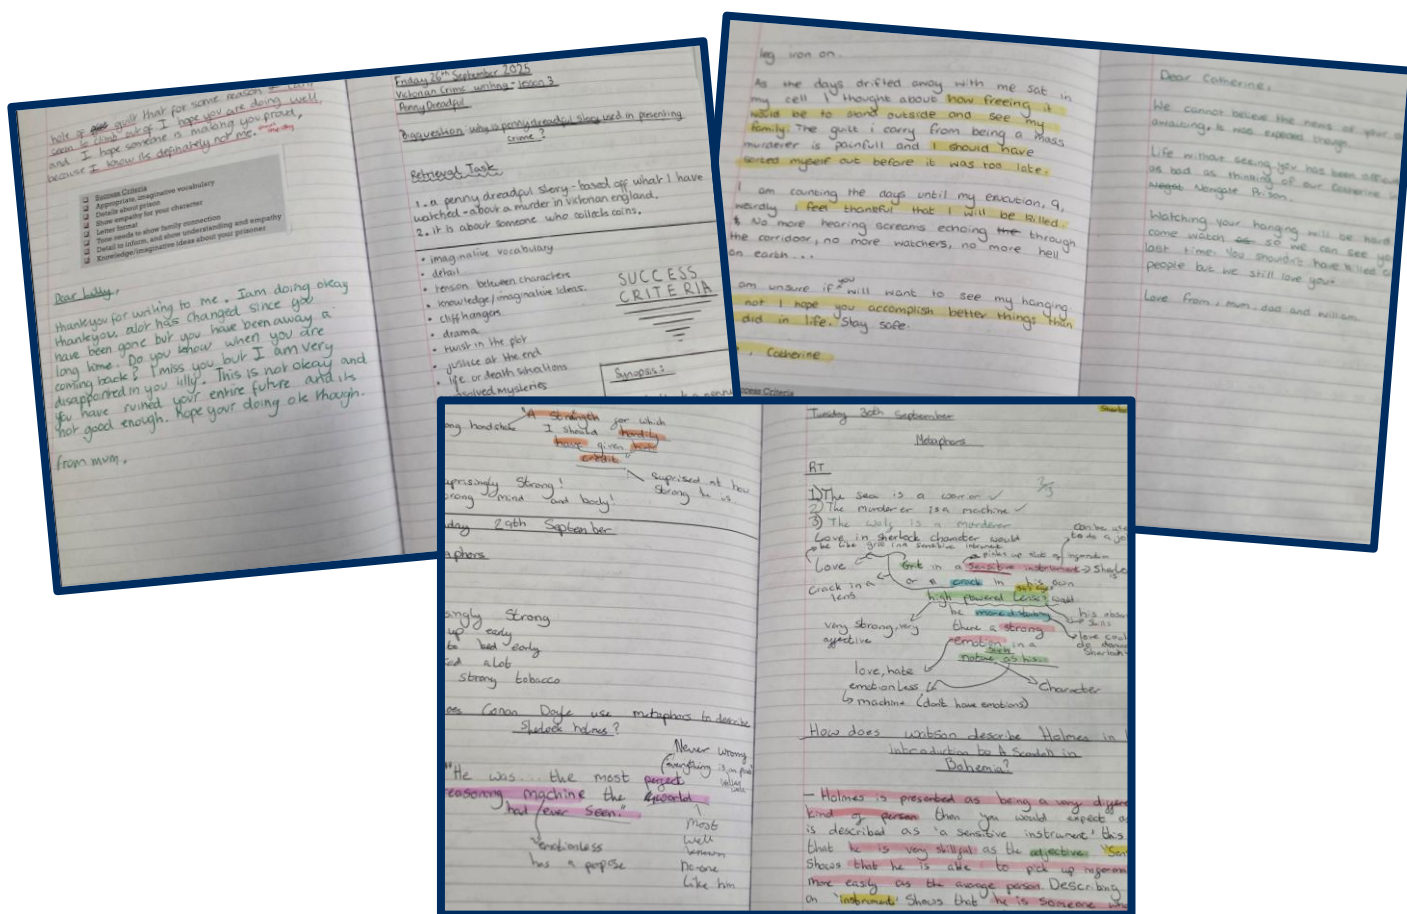 hole of guilt that for some reason I can't
seem to climb out of. I hope you are doing well,
and I hope someone is making you proud,
because I know its definately not me.
Success Criteria
Appropriate, imaginative vocabulary
Details about prison
Show empathy for your character
Letter format
Tone needs to show family connection
Detail to inform, and show understanding and empathy
Knowledge/imaginative ideas about your prisoner
Dear Lilly,
thankyou for writing to me. I am doing okay
thankyou, alot has changed since you
have been gone but you have been away a
long time. Do you know when you are
coming back? I miss you but I am very
disappointed in you lilly. This is not okay and
you have ruined your entire future and its
not good enough. Hope your doing ok though.
from mum.
Friday 26th September 2025
Victorian Crime writing - lesson 3
Penny Dreadful
Big question: why is penny dreadful story used in presenting
crime?
Retrieval Task
1. a penny dreadful story - based off what I have
watched - about a murder in victorian england.
2. it is about someone who collects coins.
• imaginative vocabulary
• detail
• tension between characters
• knowledge/imaginative ideas.
• cliffhanger
• drama
• twist in the plot
• justice at the end
• life or death situations
unsolved mysteries
SUCCESS
CRITERIA
Synopsis:
leg iron on.
As the days drifted away with me sat in
my cell I thought about how freeing it
would be to stand outside and see my
family. The guilt i carry from being a mass
murderer is painfull and I should have
sorted myself out before it was too late.
I am counting the days until my execution, 9,
weirdly I feel thankful that I will be killed.
No more hearing screams echoing the through
the corridoor, no more watchers, no more hell
on earth...
am unsure if you will want to see my hanging
not I hope you accomplish better things than
did in life. Stay safe.
Catherine
Success Criteria
Dear Catherine,
We cannot believe the news of your
awaiting, it was expected though.
Life without seeing you has been
as bad as thinking of our Catherine in
Newgate Prison.
Watching your hanging will be hard
come watch so we can see you
last time. You shouldn't have killed
people but we still love you.
Love from, mum, dad and william
"A strength for which
I should hardly
have given him
credit"
ong handshake
suprised at how
strong he is.
uprisingly Strong!
rong mind and body!
day 29th September
aphors
singly Strong
up early
to bed early
ed alot
strong tobacco
oes Conan Doyle use metaphors to describe
Sherlock holmes?
Never wrong
"He was... the most perfect
reasoning machine the world
had ever seen."
emotionless
has a purpose
most
well
known
no one
like him
Tuesday 30th September
Metaphors
RT
2/3
1) The sea is a warrior ✓
2) The murderer is a machine ✓
3) The wolf is a murderer
Love in sherlock character would
be like grit in a sensitive intrument
Love
Grit in a sensitive instrument
or a crack in his own
high powered lenses would
be more disturbing
there a strong
emotion in a
such
nature as his
crack in a
lens
very strong, very
affective
love, hate
emotionless
machine (don't have emotions)
Character
How does watson describe Holmes in
introduction to A Scandall in
Bohemia?
- Holmes is presented as being a very differe
kind of person than you would expect a
is described as 'a sensitive instrument' this
that he is very skillful as the adjective "Sen
Shows that he is able to pick up
more easily as the average person. Describing
an 'instrument' shows that he is someone